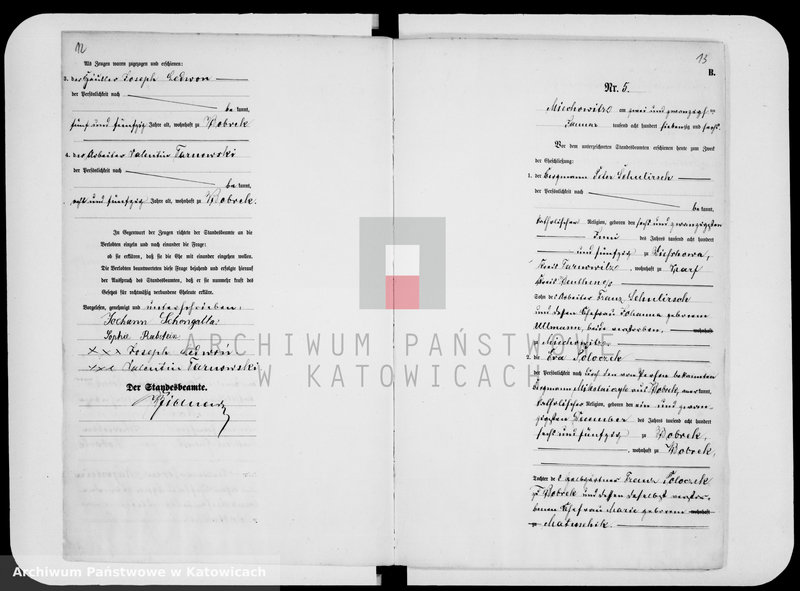 12
Als Zeugen waren zugezogen und erschienen:
3. der Häusler Joseph Ledwon
der Persönlichkeit nach
be kannt,
fünf und fünfzig Jahre alt, wohnhaft zu Bobrek
4. der Arbeiter Valentin Tarnowski
der Persönlichkeit nach
be kannt,
acht und fünfzig Jahre alt, wohnhaft zu Bobrek.
In Gegenwart der Zeugen richtete der Standesbeamte an die
Verlobten einzeln und nach einander die Frage:
ob sie erklären, daß sie die Ehe mit einander eingehen wollen.
Die Verlobten beantworteten diese Frage bejahend und erfolgte hierauf
der Ausspruch des Standesbeamten, daß er sie nunmehr kraft des
Gesetzes für rechtmäßig verbundene Eheleute erkläre.
Vorgelesen, genehmigt und unterschrieben:
Johann
Sophie
xxx Joseph Ledwoń
xxx Valentin Tarnowski
Der Standesbeamte.
13
B.
Nr. 5.
Miechowitz am zwei und zwanzigsten
Januar tausend acht hundert siebenzig und sechs.
Vor dem unterzeichneten Standesbeamten erschienen heute zum Zweck
der Eheschließung:
1. der Bergmann Peter
der Persönlichkeit nach
be kannt,
katholischer Religion, geboren den sechs und zwanzigsten
Juni des Jahres tausend acht hundert
und fünfzig zu
Kreis Tarnowitz, wohnhaft zu Karf
Kreis Beuthen
Sohn des Arbeiters Franz
und dessen Ehefrau Johanna geborenen
Ullmann, beide verstorben, wohnhaft
zu Miechowitz.
2. die Eva Poloczek
der Persönlichkeit nach durch den von Person bekannten
Bergmann aus Bobrek, anerkannt,
katholischer Religion, geboren den ein und zwan-
zigsten Dezember des Jahres tausend acht hundert
sechs und fünfzig zu Bobrek,
, wohnhaft zu Bobrek,
Tochter des Franz Poloczek
zu Bobrek und dessen daselbst verstor-
benen Ehefrau Marie geborenen wohnhaft
zu Matuschik.
ARCHIWUM PAŃSTWOWE
W KATOWICACH
Archiwum Państwowe w Katowicach